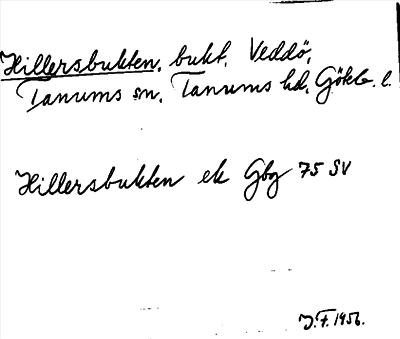 Hillersbukten, bukt, Veddö,
Tanums sn, Tanums hd, Götebs. l.
Hillersbukten ek Gbg 75 SV
J.F. 1956.